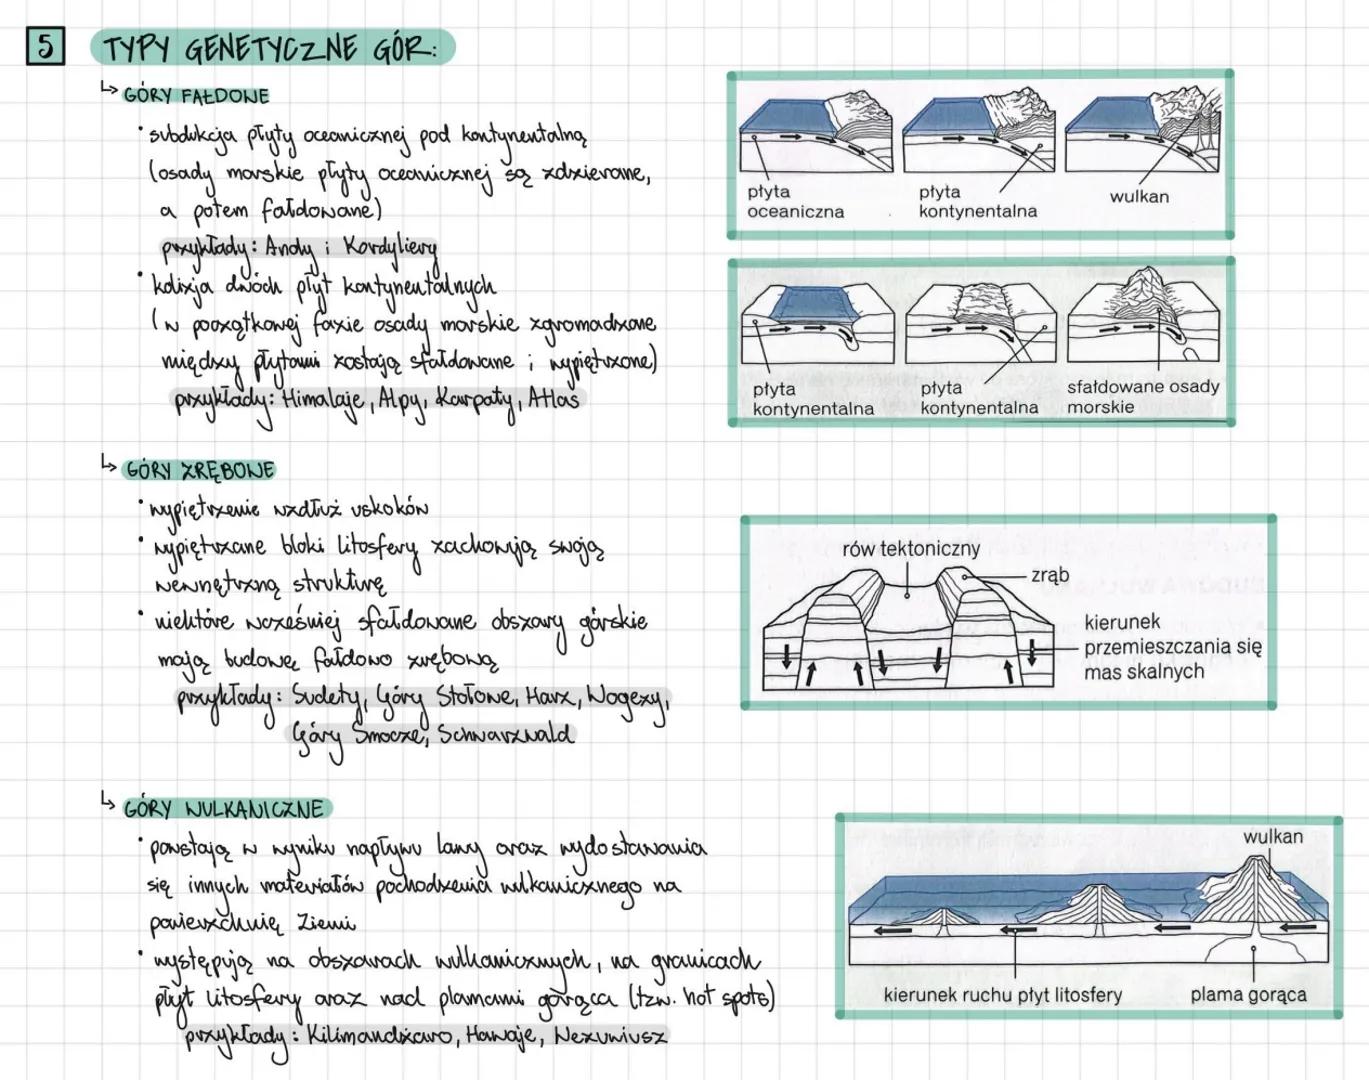 5 TYPY GENETYCZNE GÓR:
↳ GÓRY FAŁDOWE
• subdukcja płyty oceanicznej pod kontynentalną
(osady morskie płyty oceanicznej są zdzierane,
a potem fałdowane)
przykłady: Andy i Kordyliery
• kolizja dwóch płyt kontynentalnych
(w początkowej fazie osady morskie zgromadzone
między płytami zostają sfałdowane i wypiętrzone)
przykłady: Himalaje, Alpy, Karpaty, Atlas
płyta
oceaniczna
płyta
kontynentalna
wulkan
płyta
kontynentalna
płyta
kontynentalna
sfałdowane osady
morskie
↳ GÓRY ZRĘBOWE
• wypiętrzenie wzdłuż uskoków
• wypiętrzane bloki litosfery zachowują swoją
wewnętrzną strukturę
• niektóre wcześniej sfałdowane obszary górskie
mają budowę fałdowo zrębową
przykłady: Sudety, Góry Stołowe, Harz, Wogezy,
Góry Smocze, Schwarzwald
rów tektoniczny
zrąb
kierunek
przemieszczania się
mas skalnych
↳ GÓRY WULKANICZNE
• powstają w wyniku napływu lawy oraz wydostawania
się innych materiałów pochodzenia wulkanicznego na
powierzchnię Ziemi
• występują na obszarach wulkanicznych, na granicach
płyt litosfery oraz nad plamami gorąca (tzw. hot spots)
przykłady: Kilimandżaro, Hawaje, Wezuwiusz
wulkan
kierunek ruchu płyt litosfery
plama gorąca